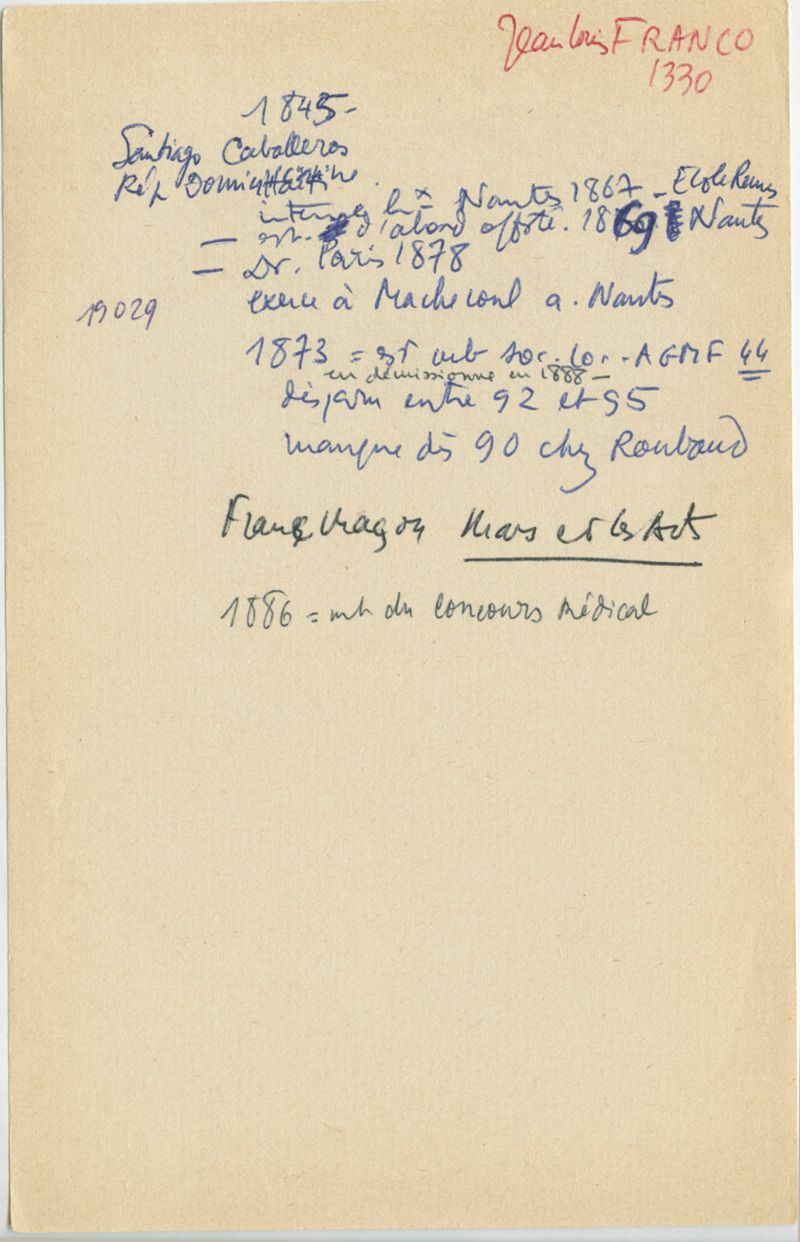 Jean Louis FRANCO
1330
1845-
Santiago Caballeros
Rép Dominicaine
internes hx Nantes 1867 - Ecole Rennes
est d'abord off sté. 1869 Nantes
- Dr. Paris 1878
exerce à Machecoul a. Nantes
19029
1873 = est mb soc. loc. - AGMF 44
en démissionne en 1888 -
disparu entre 92 et 95
manque dès 90 chez Roubaud
Mars et les Arts
1886 = mb du Concours Médical